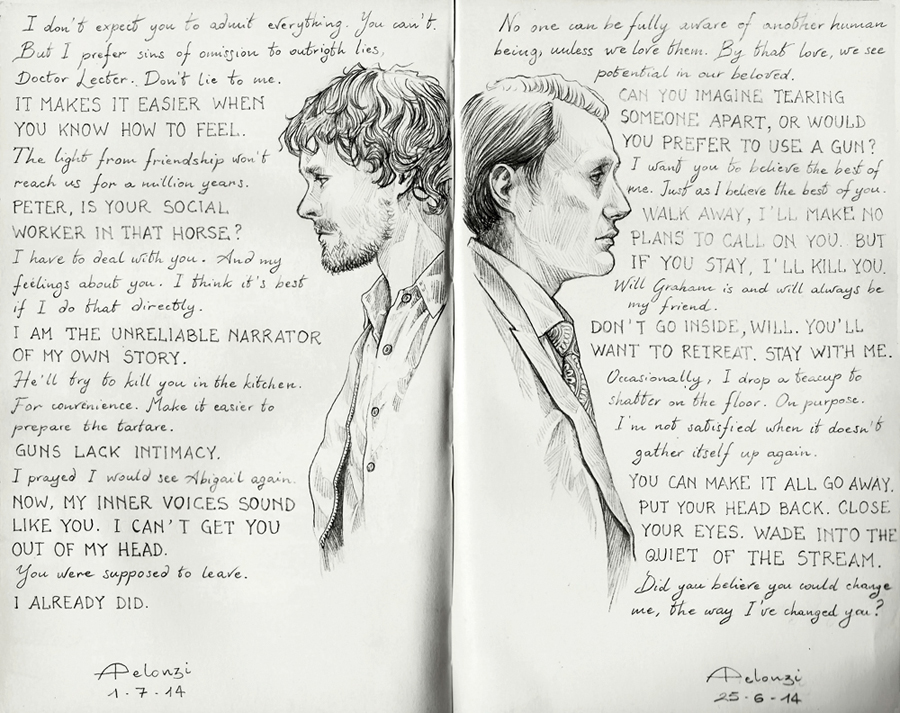 I don't expect you to admit everything. You can't.
But I prefer sins of omission to outrigth lies,
Doctor Lecter. Don't lie to me.
IT MAKES IT EASIER WHEN
YOU KNOW HOW TO FEEL.
The light from friendship won't
reach us for a million years.
PETER, IS YOUR SOCIAL
WORKER IN THAT HORSE?
I have to deal with you. And my
feelings about you. I think it's best
if I do that directly.
I AM THE UNRELIABLE NARRATOR
OF MY OWN STORY.
He'll try to kill you in the kitchen.
For convenience. Make it easier to
prepare the tartare.
GUNS LACK INTIMACY.
I prayed I would see Abigail again.
NOW, MY INNER VOICES SOUND
LIKE YOU. I CAN'T GET YOU
OUT OF MY HEAD.
You were supposed to leave.
I ALREADY DID.
APelonzi
1.7.14
No one can be fully aware of another human
being, unless we love them. By that love, we see
potential in our beloved.
CAN YOU IMAGINE TEARING
SOMEONE APART, OR WOULD
YOU PREFER TO USE A GUN?
I want you to believe the best of
me. Just as I believe the best of you.
WALK AWAY, I'LL MAKE NO
PLANS TO CALL ON YOU. BUT
IF YOU STAY, I'LL KILL YOU.
Will Graham is and will always be
my friend.
DON'T GO INSIDE, WILL. YOU'LL
WANT TO RETREAT. STAY WITH ME.
Occasionally, I drop a teacup to
shatter on the floor. On purpose.
I'm not satisfied when it doesn't
gather itself up again.
YOU CAN MAKE IT ALL GO AWAY.
PUT YOUR HEAD BACK. CLOSE
YOUR EYES. WADE INTO THE
QUIET OF THE STREAM.
Did you believe you could change
me, the way I've changed you?
APelonzi
25-6-14